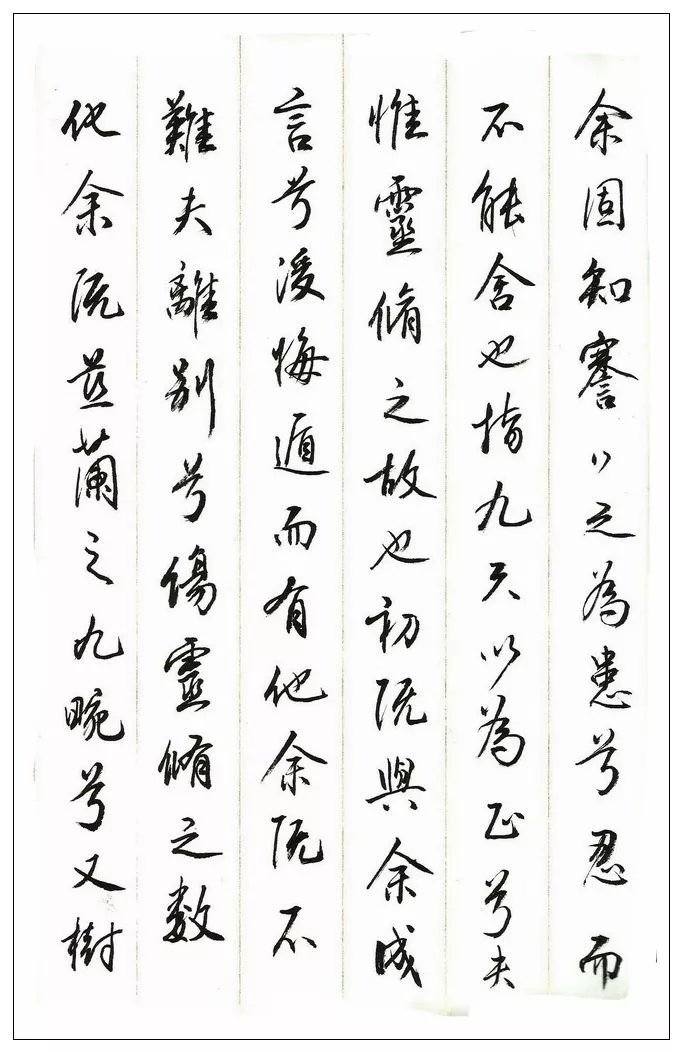 余固知謇々之為患兮忍而
不能舍也指九天以為正兮夫
惟靈脩之故也初既與余成
言兮後悔遁而有他余既不
難夫離別兮傷靈脩之數
化余既茲蘭之九畹兮又樹